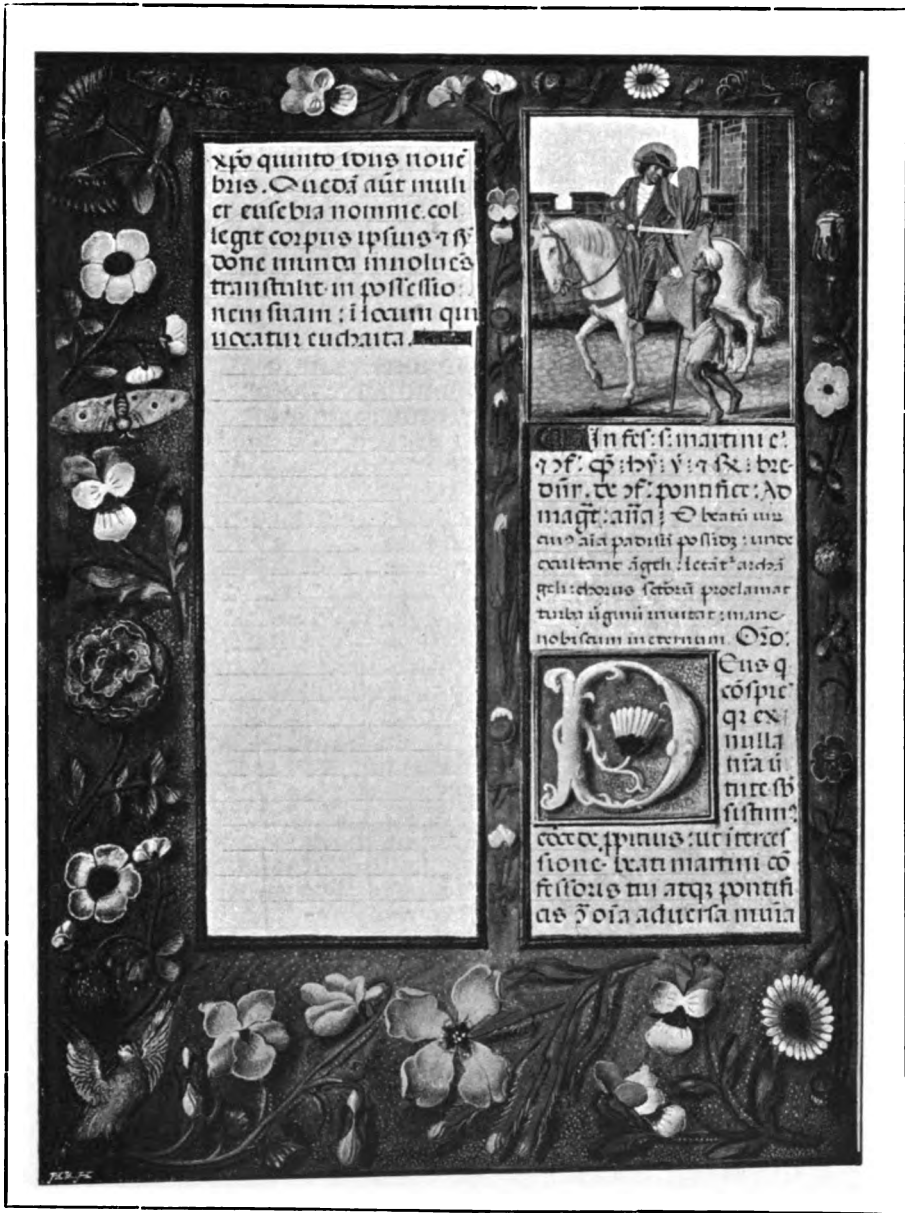 xp̄o quinto idus nouē
bris. Quedā aūt muli
er eusebia nomine. col
legit corpus ipsius ⁊
done munda inuoluēs
transtulit in possessio
nem suam : ī locum qui
uocatur euchaita.
In fes: s: martini
bre
de pontifice: Ad
mag̅t: an̄a: O beatū uir
cuiꝰ aīa padisū possidꝫ: unde
exultant āgeli: letāt archā
geli: chorus sctōrū proclamat
turba ūginū inuitat: mane
nobiscum in eternum Orō:
DEus q
cōspic
qꝛ ex
nulla
nr̄a ū
tute sb̄
sistim
ꝓpitius: ut īterces
sione beati martini cō
fessoris tui atqꝫ pontifi
cis ꝯ oīa aduersa munia